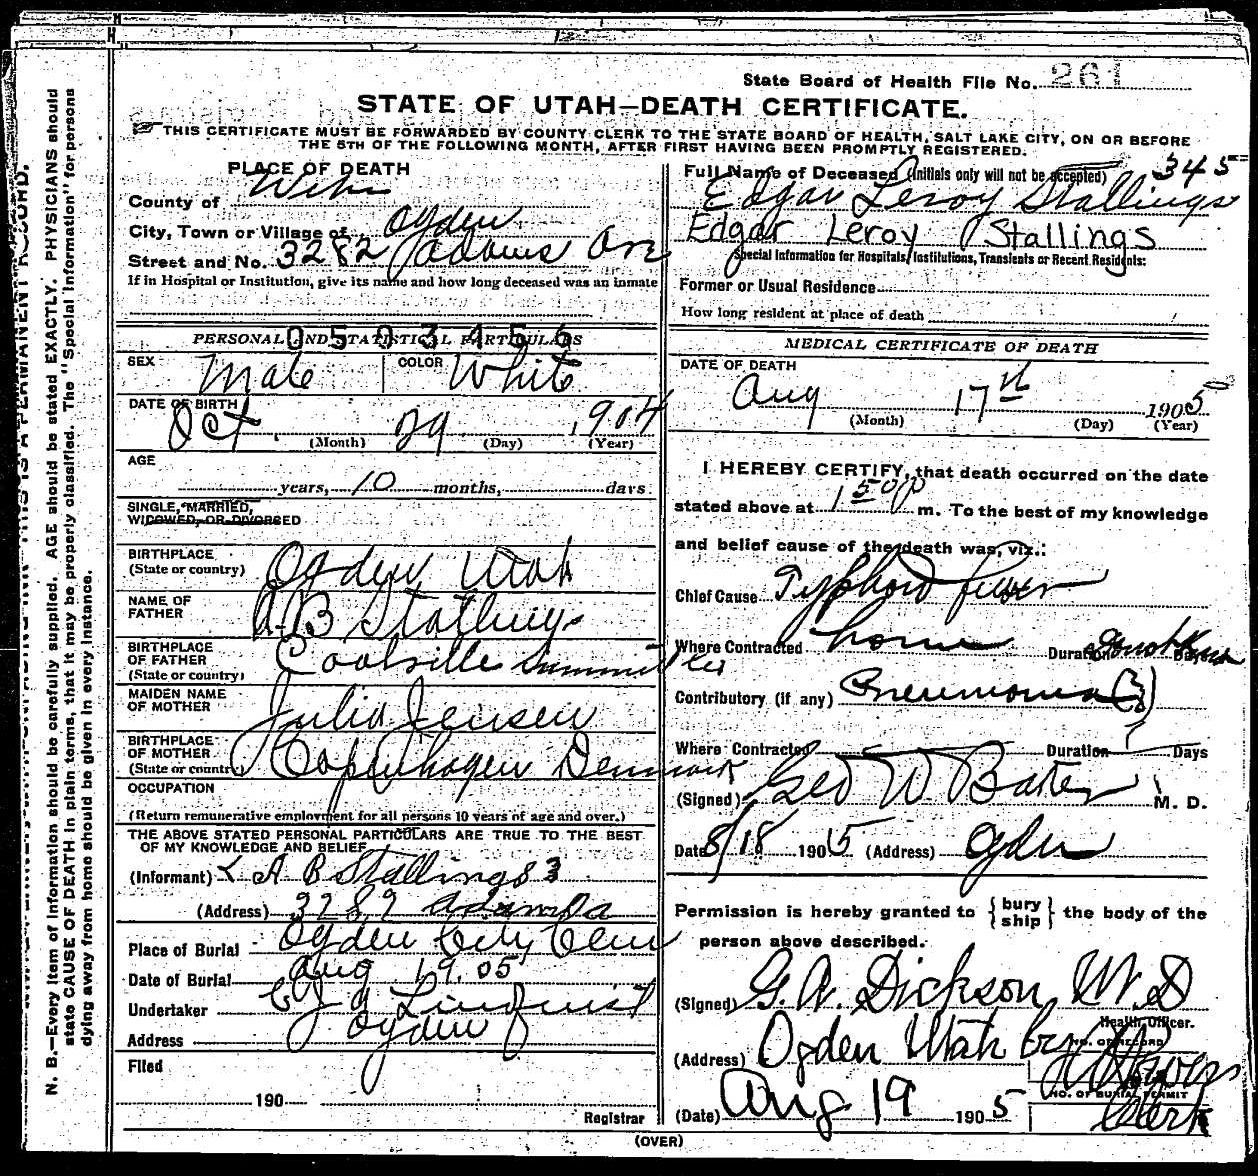 State Board of Health File No. 261
STATE OF UTAH—DEATH CERTIFICATE.
THIS CERTIFICATE MUST BE FORWARDED BY COUNTY CLERK TO THE STATE BOARD OF HEALTH, SALT LAKE CITY, ON OR BEFORE
THE 5TH OF THE FOLLOWING MONTH, AFTER FIRST HAVING BEEN PROMPTLY REGISTERED.
PLACE OF DEATH
County of Weber
City, Town or Village of Ogden
Street and No. 3282 Adams Ave
If in Hospital or Institution, give its name and how long deceased was an inmate
0503456
PERSONAL AND STATISTICAL PARTICULARS
SEX Male COLOR White
DATE OF BIRTH
Oct 29 1904
(Month) (Day) (Year)
AGE
years, 10 months, days
SINGLE, MARRIED,
WIDOWED, OR DIVORCED
BIRTHPLACE
(State or country) Ogden Utah
NAME OF
FATHER A B Stallings
BIRTHPLACE
OF FATHER
(State or country) Coalville Summit
MAIDEN NAME
OF MOTHER Julia Jensen
BIRTHPLACE
OF MOTHER
(State or country) Copenhagen Denmark
OCCUPATION
(Return remunerative employment for all persons 10 years of age and over.)
THE ABOVE STATED PERSONAL PARTICULARS ARE TRUE TO THE BEST
OF MY KNOWLEDGE AND BELIEF
(Informant) A B Stallings
(Address) 3282
Place of Burial Ogden City Cem
Date of Burial Aug 19.05
Undertaker Lindquist
Address Ogden
Filed
190
Registrar
345
Full Name of Deceased (Initials only will not be accepted)
Edgar Leroy Stallings
Edgar Leroy Stallings
Special Information for Hospitals, Institutions, Transients or Recent Residents:
Former or Usual Residence
How long resident at place of death
MEDICAL CERTIFICATE OF DEATH
DATE OF DEATH
Aug 17 1905
(Month) (Day) (Year)
I HEREBY CERTIFY, that death occurred on the date
stated above at 1 50 p m. To the best of my knowledge
and belief cause of the death was, viz.:
Chief Cause Typhoid fever
Where Contracted home Duration Days
Contributory (if any) Pneumonia (?)
Where Contracted Duration ? Days
(Signed) Geo W Baker M. D.
Date 8/18 1905 (Address) Ogden
Permission is hereby granted to {bury ship} the body of the
person above described.
(Signed) G. A. Dickson M.D
Health Officer.
(Address) Ogden Utah
NO. OF RECORD
(Date) Aug 19 1905
NO. OF BURIAL PERMIT
Clerk
(OVER)
N. B.—Every item of information should be carefully supplied. AGE should be stated EXACTLY. PHYSICIANS should
state CAUSE OF DEATH in plain terms, that it may be properly classified. The "Special Information" for persons
dying away from home should be given in every instance.